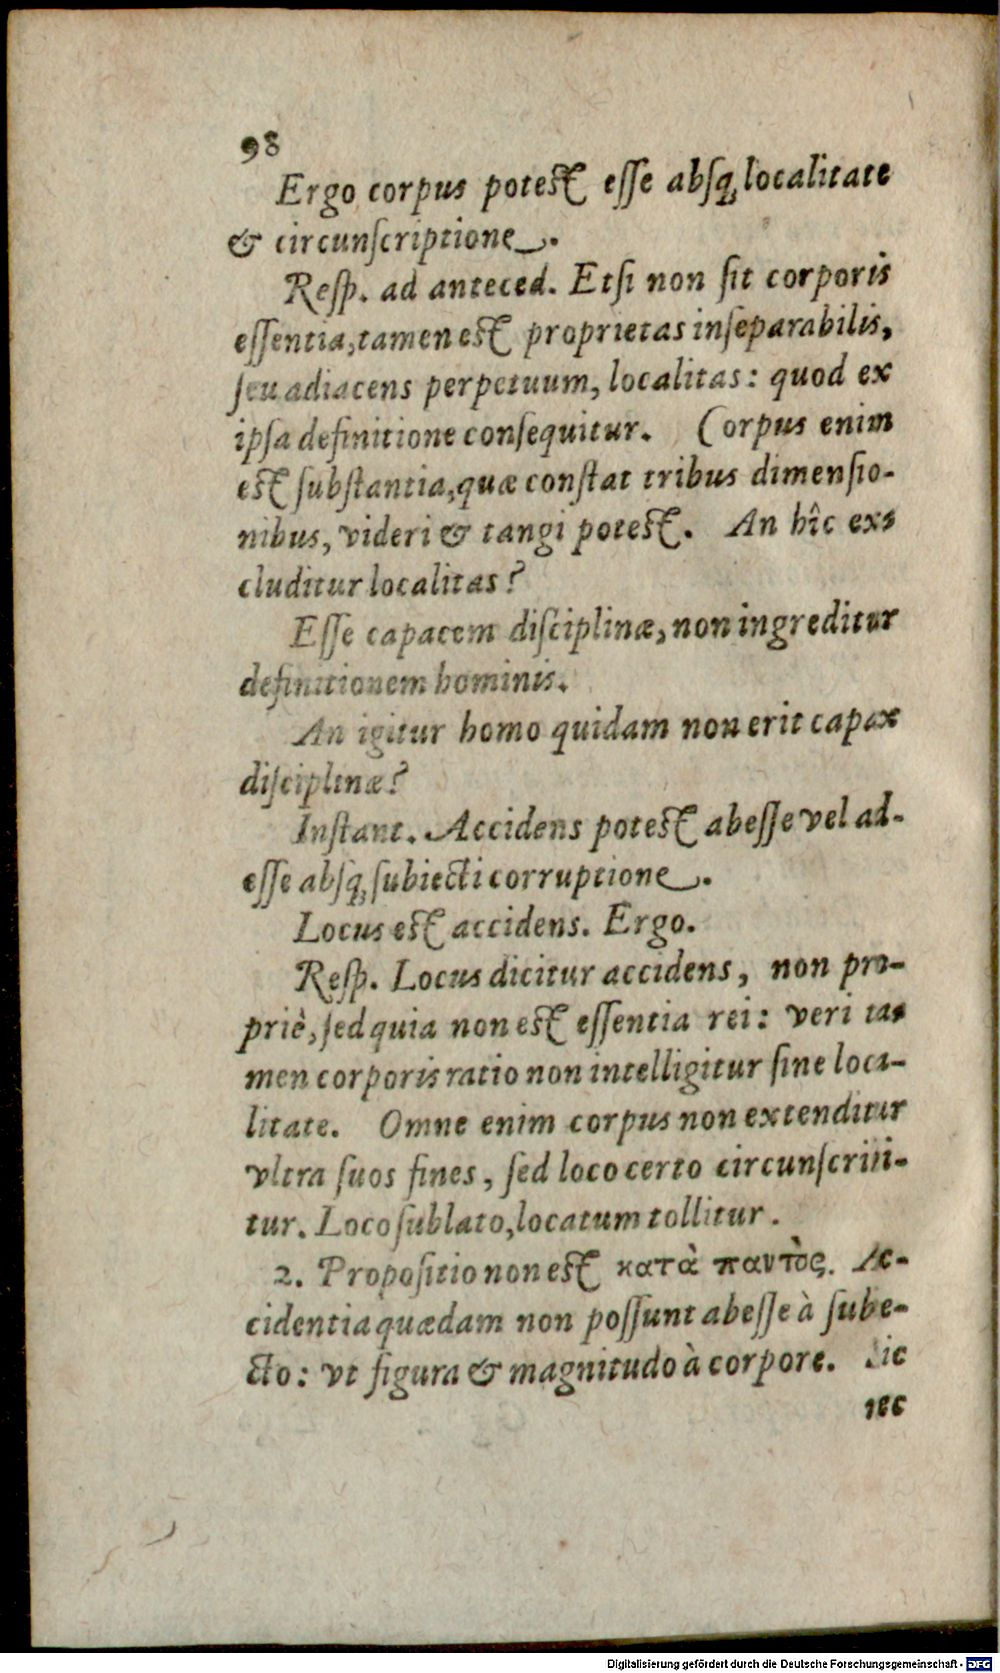 98
Ergo corpus potest esse absq; localitate
& circunscriptione.
Resp. ad anteced. Etsi non sit corporis
essentia, tamen est proprietas inseparabilis,
seu adiacens perpetuum, localitas: quod ex
ipsa definitione consequitur. Corpus enim
est substantia, quæ constat tribus dimensio-
nibus, videri & tangi potest. An hîc ex-
cluditur localitas?
Esse capacem disciplinæ, non ingreditur
definitionem hominis.
An igitur homo quidam non erit capax
disciplinæ?
Instant. Accidens potest abesse vel ad-
esse absq; subiecti corruptione.
Locus est accidens. Ergo.
Resp. Locus dicitur accidens, non pro-
priè, sed quia non est essentia rei: veri ta-
men corporis ratio non intelligitur sine loca-
litate. Omne enim corpus non extenditur
vltra suos fines, sed loco certo circunscribi-
tur. Loco sublato, locatum tollitur.
2. Propositio non est κατὰ παντὸς. Ac-
cidentia quædam non possunt abesse à subie-
cto: vt figura & magnitudo à corpore. Sic
nec
Digitalisierung gefördert durch die Deutsche Forschungsgemeinschaft - DFG